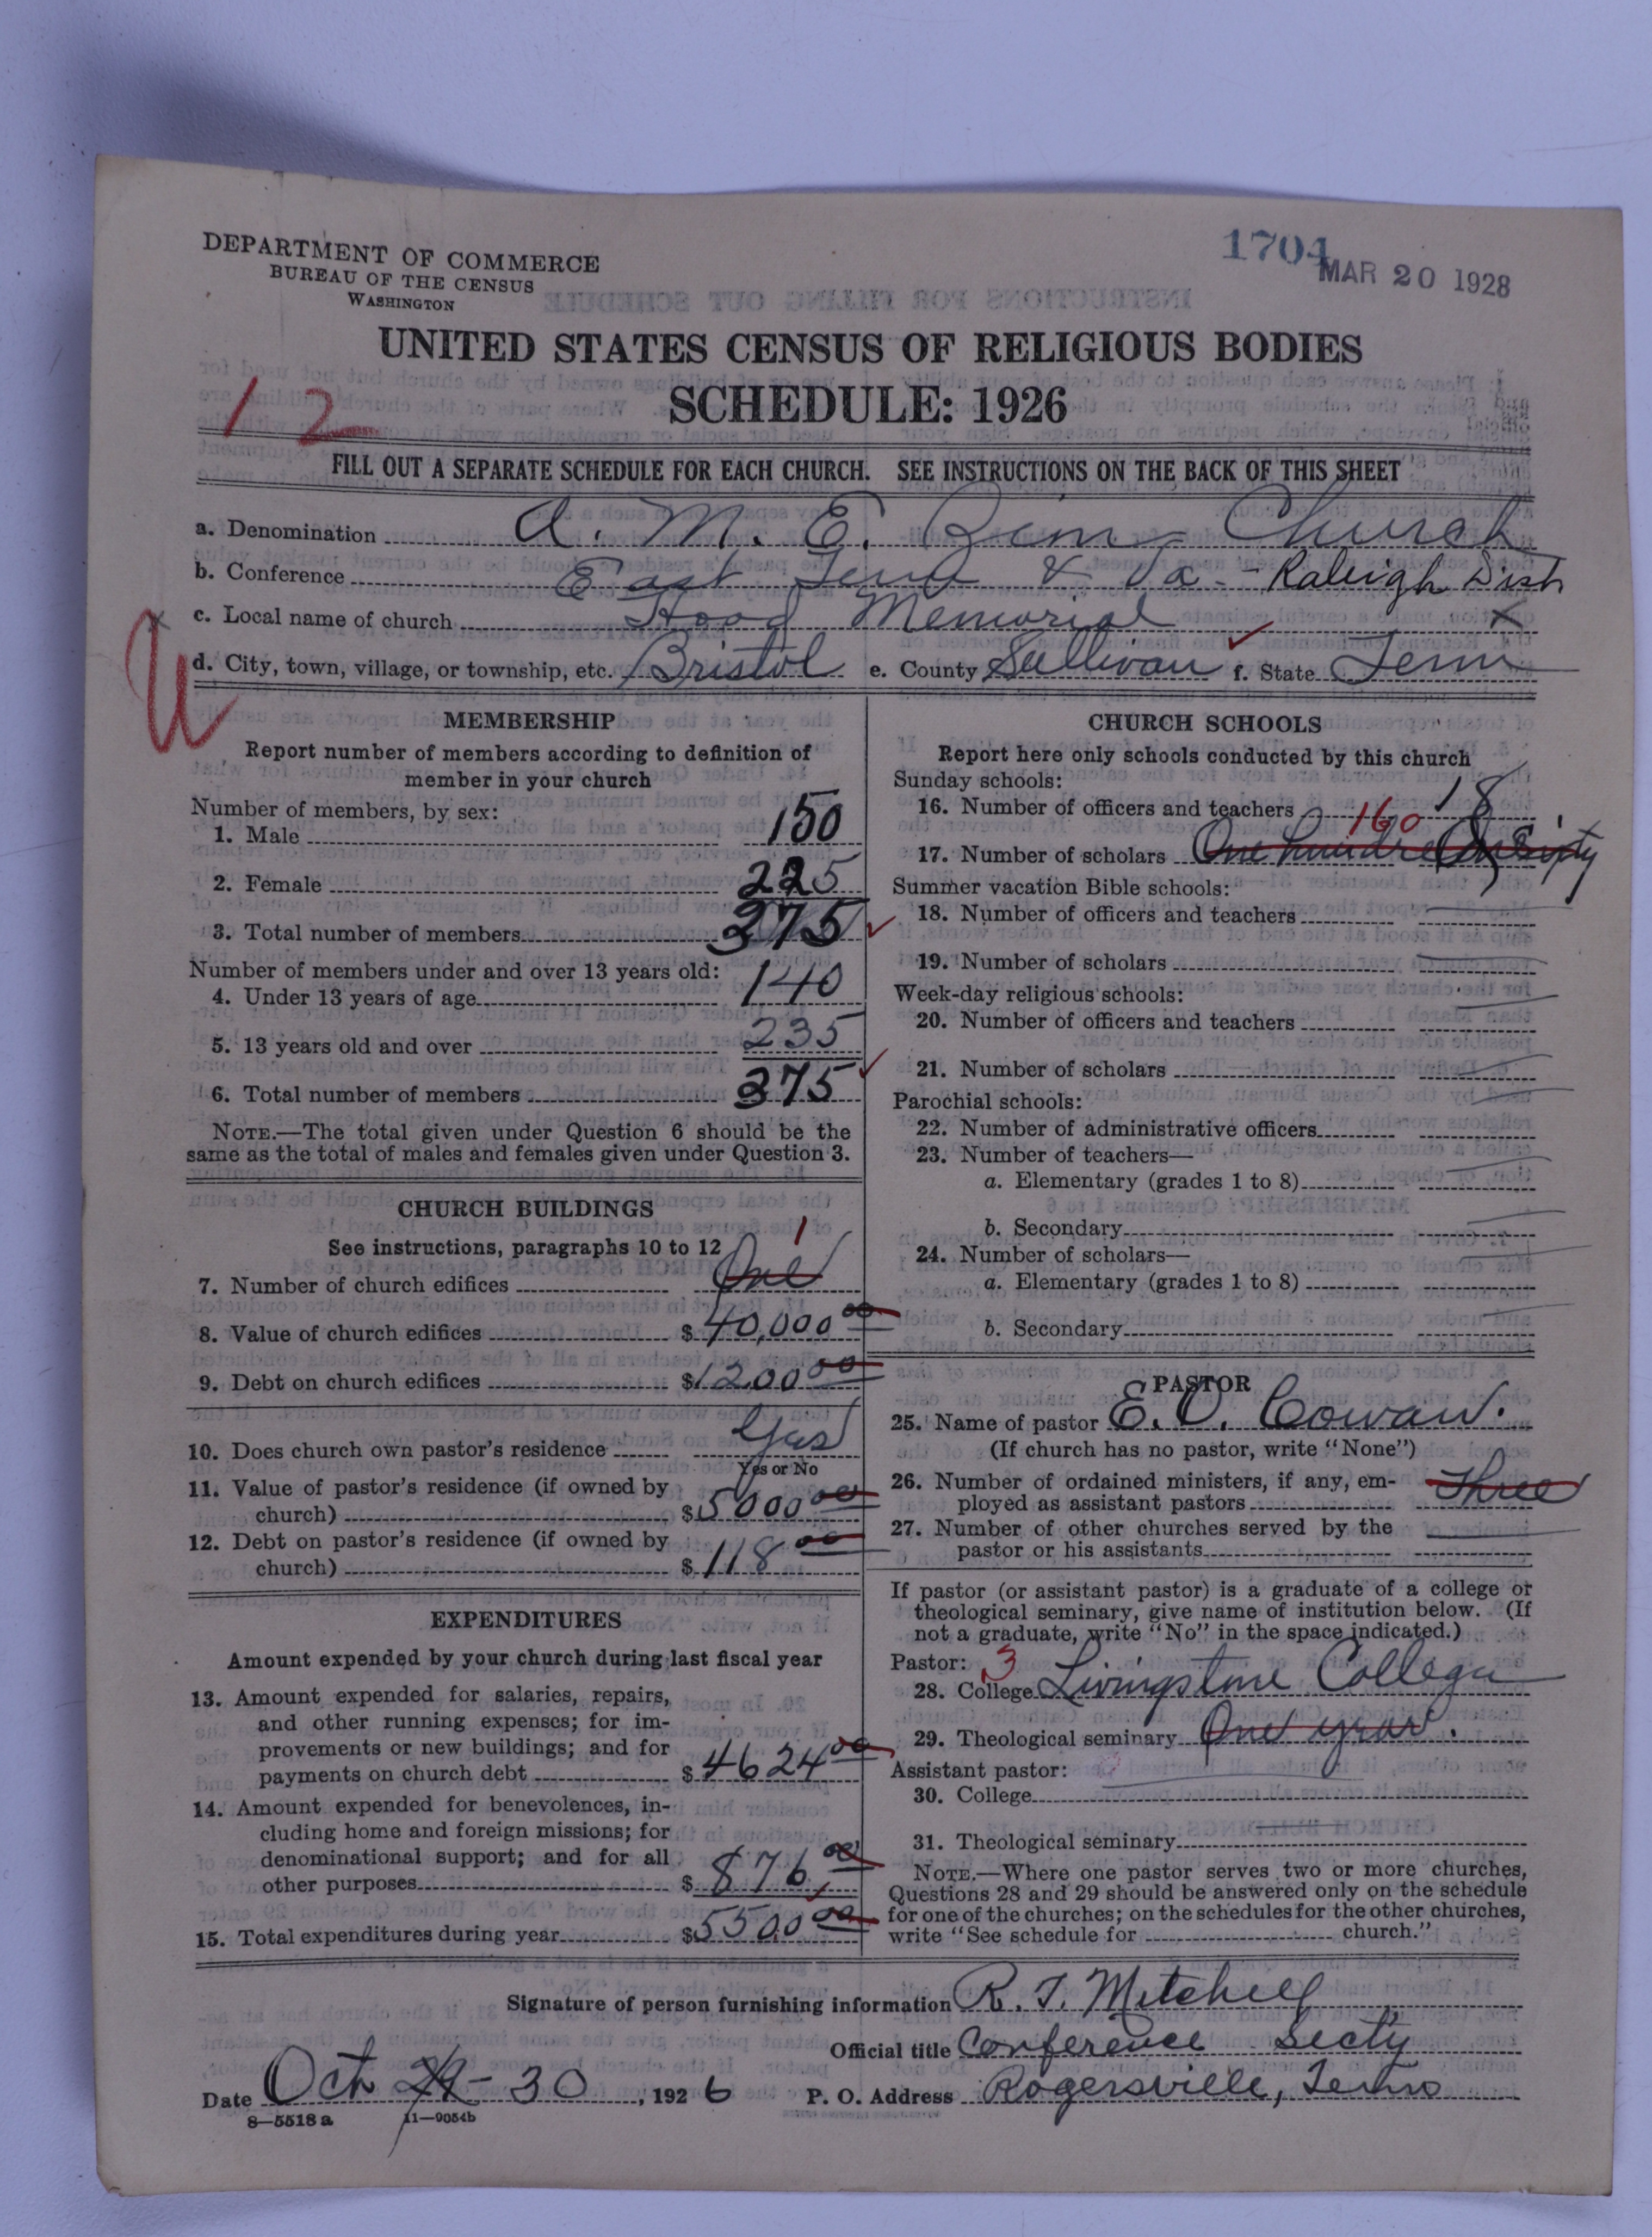 1704
MAR 20 1928
DEPARTMENT OF COMMERCE
BUREAU OF THE CENSUS
WASHINGTON
UNITED STATES CENSUS OF RELIGIOUS BODIES
SCHEDULE: 1926
12
FILL OUT A SEPARATE SCHEDULE FOR EACH CHURCH. SEE INSTRUCTIONS ON THE BACK OF THIS SHEET
a. Denomination A. M. E. Zion Church
b. Conference East Tenn & Va - Raleigh Dist
c. Local name of church Hood Memorial X
U
d. City, town, village, or township, etc. Bristol e. County Sullivan f. State Tenn
MEMBERSHIP
Report number of members according to definition of
member in your church
Number of members, by sex:
1. Male 150
2. Female 225
3. Total number of members 375
Number of members under and over 13 years old:
4. Under 13 years of age 140
5. 13 years old and over 235
6. Total number of members 375
NOTE.—The total given under Question 6 should be the
same as the total of males and females given under Question 3.
CHURCH BUILDINGS
See instructions, paragraphs 10 to 12
1
7. Number of church edifices One
8. Value of church edifices $40,000 00
9. Debt on church edifices $1200 00
10. Does church own pastor's residence Yes
Yes or No
11. Value of pastor's residence (if owned by
church) $5000 00
12. Debt on pastor's residence (if owned by
church) $118 00
EXPENDITURES
Amount expended by your church during last fiscal year
13. Amount expended for salaries, repairs,
and other running expenses; for im-
provements or new buildings; and for
payments on church debt $4624 00
14. Amount expended for benevolences, in-
cluding home and foreign missions; for
denominational support; and for all
other purposes $876 00
15. Total expenditures during year $5500 00
CHURCH SCHOOLS
Report here only schools conducted by this church
Sunday schools:
16. Number of officers and teachers 18
160
17. Number of scholars One hundred Sixty
Summer vacation Bible schools:
18. Number of officers and teachers
19. Number of scholars
Week-day religious schools:
20. Number of officers and teachers
21. Number of scholars
Parochial schools:
22. Number of administrative officers
23. Number of teachers—
a. Elementary (grades 1 to 8)
b. Secondary
24. Number of scholars—
a. Elementary (grades 1 to 8)
b. Secondary
PASTOR
25. Name of pastor E. O. Cowan.
(If church has no pastor, write "None")
26. Number of ordained ministers, if any, em-
ployed as assistant pastors Three
27. Number of other churches served by the
pastor or his assistants
If pastor (or assistant pastor) is a graduate of a college or
theological seminary, give name of institution below. (If
not a graduate, write "No" in the space indicated.)
Pastor: 3
28. College Livingstone College
29. Theological seminary One year.
Assistant pastor:
30. College
31. Theological seminary
NOTE.—Where one pastor serves two or more churches,
Questions 28 and 29 should be answered only on the schedule
for one of the churches; on the schedules for the other churches,
write "See schedule for church."
Signature of person furnishing information R. T. Mitchell
Official title Conference Secty
Date Oct 29 - 30, 1926 P. O. Address Rogersville, Tenn
8—5518 a 11—9054b